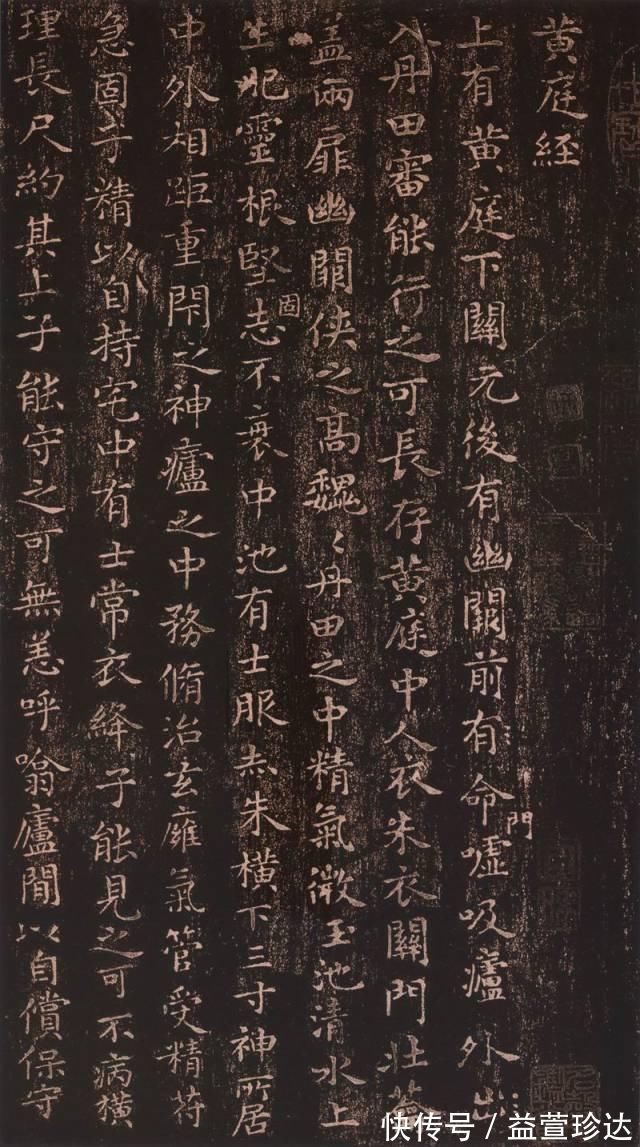 黄庭經
上有黄庭下關元後有幽闕前有命門噓吸廬外出
入丹田審能行之可長存黄庭中人衣朱衣關門壯蘥
盖兩扉幽闕俠之高魏〻丹田之中精氣微玉池清水上
生肥靈根堅固志不衰中池有士服赤朱横下三寸神所居
中外相距重閇之神廬之中務脩治玄廱氣管受精符
急固子精以自持宅中有士常衣絳子能見之可不病横
理長尺約其上子能守之可無恙呼噏廬間以自償保守
快传号／益萱珍达